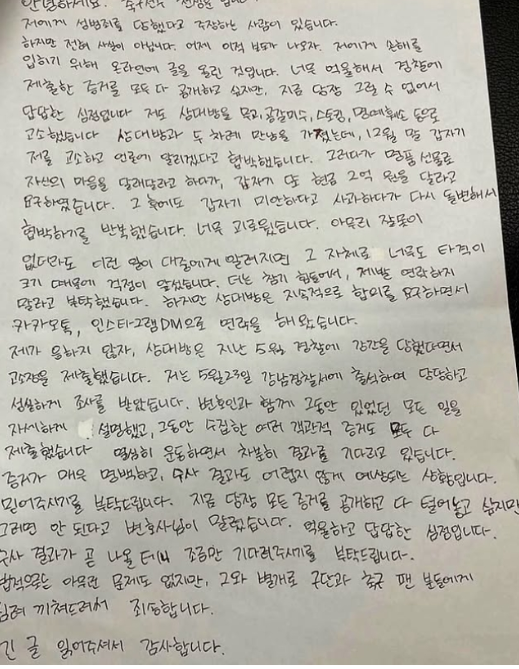 안녕하세요. 축구선수
저에게 성범죄를 당했다고 주장하는 사람이 있습니다.
하지만 전혀 사실이 아닙니다. 어제 이적 보도가 나오자, 저에게 손해를
입히기 위해 온라인에 글을 올린 것입니다. 너무 억울해서 경찰에
제출한 증거를 모두 다 공개하고 싶지만, 지금 당장 그럴 수 없어서
답답한 심정입니다 저도 상대방을 무고, 공갈미수, 스토킹, 명예훼손 등으로
고소했습니다 상대방과 두 차례 만남을 가졌는데, 12월 말 갑자기
저를 고소하고 언론에 알리겠다고 협박했습니다. 그러다가 명품 선물로
자신의 마음을 달래달라고 하다가, 갑자기 또 현금 2억 원을 달라고
요구하였습니다. 그 후에도 갑자기 미안하다고 사과하다가 다시 돌변해서
협박하기를 반복했습니다. 너무 괴로웠습니다. 아무리 잘못이
없더라도 이런 일이 대중에게 알려지면 그 자체로 너무도 타격이
크기 때문에 걱정이 앞섰습니다. 더는 참기 힘들어서, 제발 연락하지
말라고 부탁했습니다. 하지만 상대방은 지속적으로 합의를 요구하면서
카카오톡, 인스타그램DM으로 연락을 해왔습니다.
제가 응하지 않자, 상대방은 지난 5월 경찰에 강간을 당했다면서
고소장을 제출했습니다. 저는 5월23일 강남경찰서에 출석하여 당당하고
성실하게 조사를 받았습니다. 변호인과 함께 그동안 있었던 모든 일을
자세하게 설명했고, 그동안 수집한 여러 객관적 증거도 모두 다
제출했습니다 열심히 운동하면서 차분히 결과를 기다리고 있습니다.
증거가 매우 명백하고, 수사 결과도 어렵지 않게 예상되는 상황입니다.
믿어주시기를 부탁드립니다. 지금 당장 모든 증거를 공개하고 다 털어놓고 싶지만
그러면 안 된다고 변호사님이 말렸습니다. 억울하고 답답한 심정입니다.
수사 결과가 곧 나올 터니 조금만 기다려주시기를 부탁드립니다.
법적으로는 아무런 문제도 없지만, 그와 별개로 구단과 축구 팬 분들에게
심려 끼쳐드려서 죄송합니다.
긴 글 읽어주셔서 감사합니다.